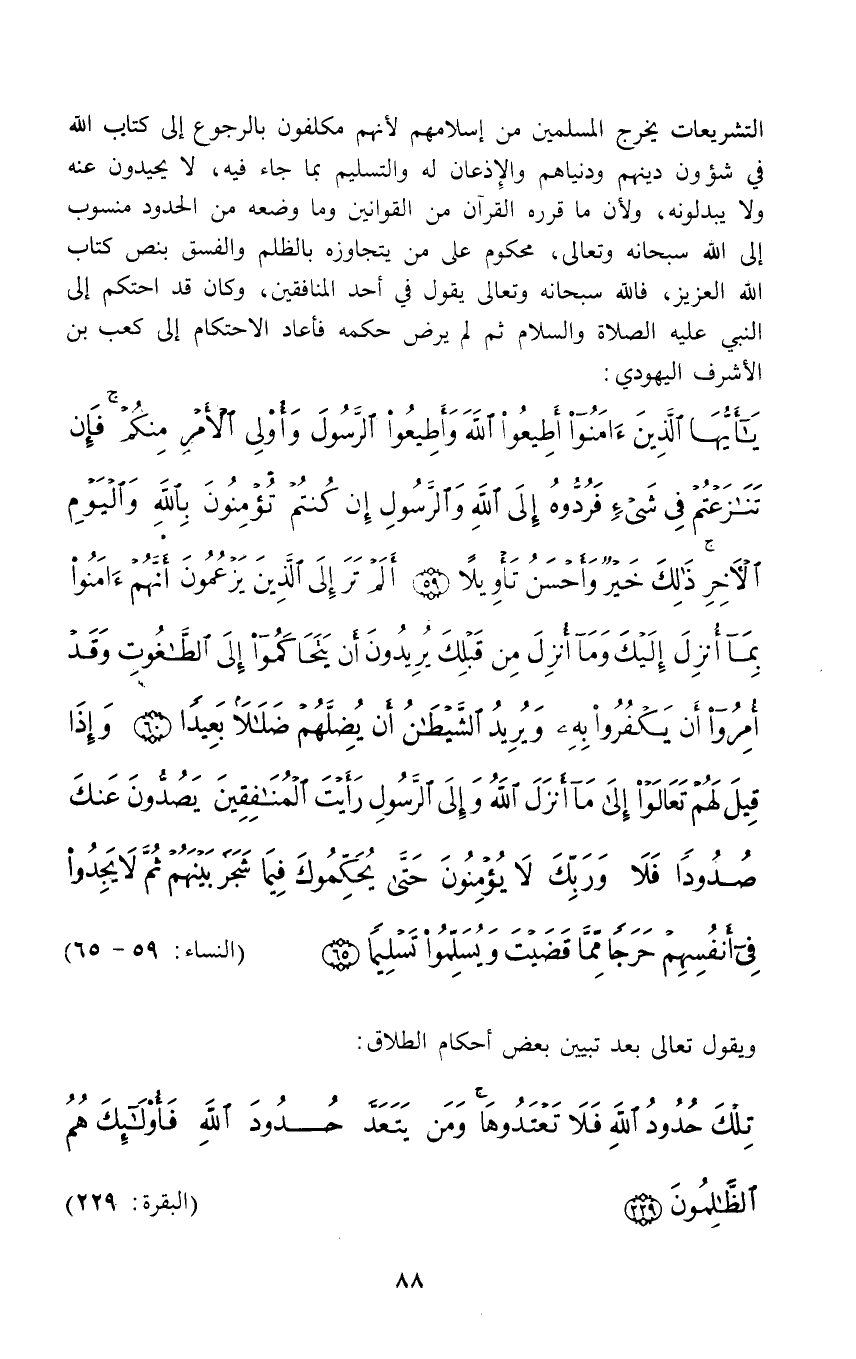 التشريعات يخرج المسلمين من إسلامهم لأنهم مكلفون بالرجوع إلى كتاب الله
في شؤون دينهم ودنياهم والإذعان له والتسليم بما جاء فيه، لا يحيدون عنه
ولا يبدلونه، ولأن ما قرره القرآن من القوانين وما وضعه من الحدود منسوب
إلى الله سبحانه وتعالى، محكوم على من يتجاوزه بالظلم والفسق بنص كتاب
الله العزيز، فالله سبحانه وتعالى يقول في أحد المنافقين، وكان قد احتكم إلى
النبي عليه الصلاة والسلام ثم لم يرض حكمه فأعاد الاحتكام إلى كعب بن
الأشرف اليهودي:
يَـٰٓأَيُّهَا ٱلَّذِينَ ءَامَنُوٓا۟ أَطِيعُوا۟ ٱللَّهَ وَأَطِيعُوا۟ ٱلرَّسُولَ وَأُو۟لِى ٱلْأَمْرِ مِنكُمْ ۖ فَإِن
تَنَـٰزَعْتُمْ فِى شَىْءٍ فَرُدُّوهُ إِلَى ٱللَّهِ وَٱلرَّسُولِ إِن كُنتُمْ تُؤْمِنُونَ بِٱللَّهِ وَٱلْيَوْمِ
ٱلْـَٔاخِرِ ۚ ذَٰلِكَ خَيْرٌ وَأَحْسَنُ تَأْوِيلًا ﴿٥٩﴾ أَلَمْ تَرَ إِلَى ٱلَّذِينَ يَزْعُمُونَ أَنَّهُمْ ءَامَنُوا۟
بِمَآ أُنزِلَ إِلَيْكَ وَمَآ أُنزِلَ مِن قَبْلِكَ يُرِيدُونَ أَن يَتَحَاكَمُوٓا۟ إِلَى ٱلطَّـٰغُوتِ وَقَدْ
أُمِرُوٓا۟ أَن يَكْفُرُوا۟ بِهِۦ وَيُرِيدُ ٱلشَّيْطَـٰنُ أَن يُضِلَّهُمْ ضَلَـٰلًۢا بَعِيدًا ﴿٦٠﴾ وَإِذَا
قِيلَ لَهُمْ تَعَالَوْا۟ إِلَىٰ مَآ أَنزَلَ ٱللَّهُ وَإِلَى ٱلرَّسُولِ رَأَيْتَ ٱلْمُنَـٰفِقِينَ يَصُدُّونَ عَنكَ
صُدُودًا فَلَا وَرَبِّكَ لَا يُؤْمِنُونَ حَتَّىٰ يُحَكِّمُوكَ فِيمَا شَجَرَ بَيْنَهُمْ ثُمَّ لَا يَجِدُوا۟
فِىٓ أَنفُسِهِمْ حَرَجًا مِّمَّا قَضَيْتَ وَيُسَلِّمُوا۟ تَسْلِيمًا ﴿٦٥﴾ (النساء: ٥٩ - ٦٥)
ويقول تعالى بعد تبيين بعض أحكام الطلاق:
تِلْكَ حُدُودُ ٱللَّهِ فَلَا تَعْتَدُوهَا ۚ وَمَن يَتَعَدَّ حُدُودَ ٱللَّهِ فَأُو۟لَـٰٓئِكَ هُمُ
ٱلظَّـٰلِمُونَ ﴿٢٢٩﴾ (البقرة: ٢٢٩)
٨٨